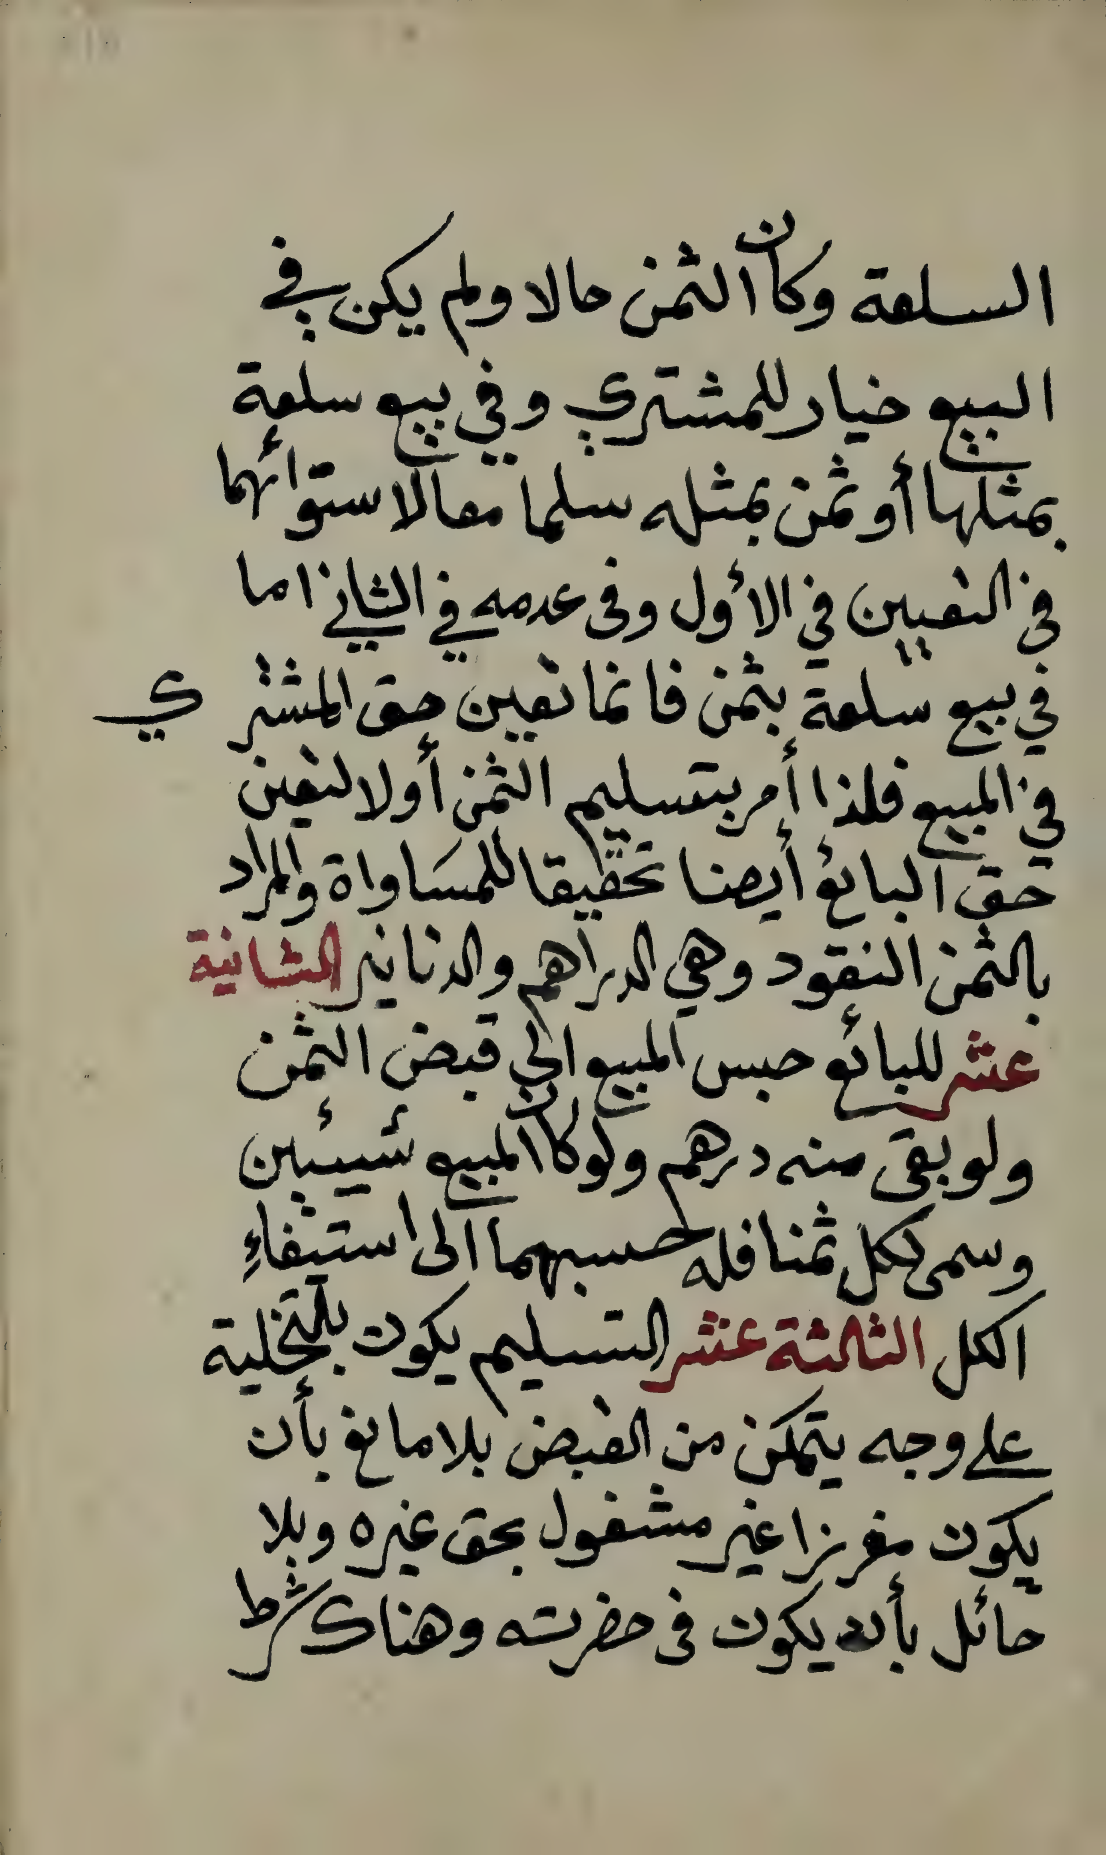 السلعة وكان الثمن حالا ولم يكن في
البيع خيار للمشتري وفي بيع سلعة
بمثلها أو ثمن بمثله سلما معا لاستوائهما
في التعيين في الأول وفى عدمه في الثاني اما
في بيع سلعة بثمن فانما تعين حق المشتري
في المبيع فلذا أمر بتسليم الثمن أولا لتعين
حق البائع أيضا تحقيقا للمساواة والمراد
بالثمن النقود وهي الدراهم والدنانير الثانية
عشر للبائع حبس المبيع الى قبض الثمن
ولو بقى منه درهم ولو كان المبيع شيئين
وسمى لكل ثمنا فله حبسهما الى استيفاء
الكل الثالثة عشر التسليم يكون بالتخلية
على وجه يتمكن من القبض بلا مانع بأن
يكون مفرزا غير مشغول بحق غيره وبلا
حائل بأن يكون فى حضرته وهناك شرط